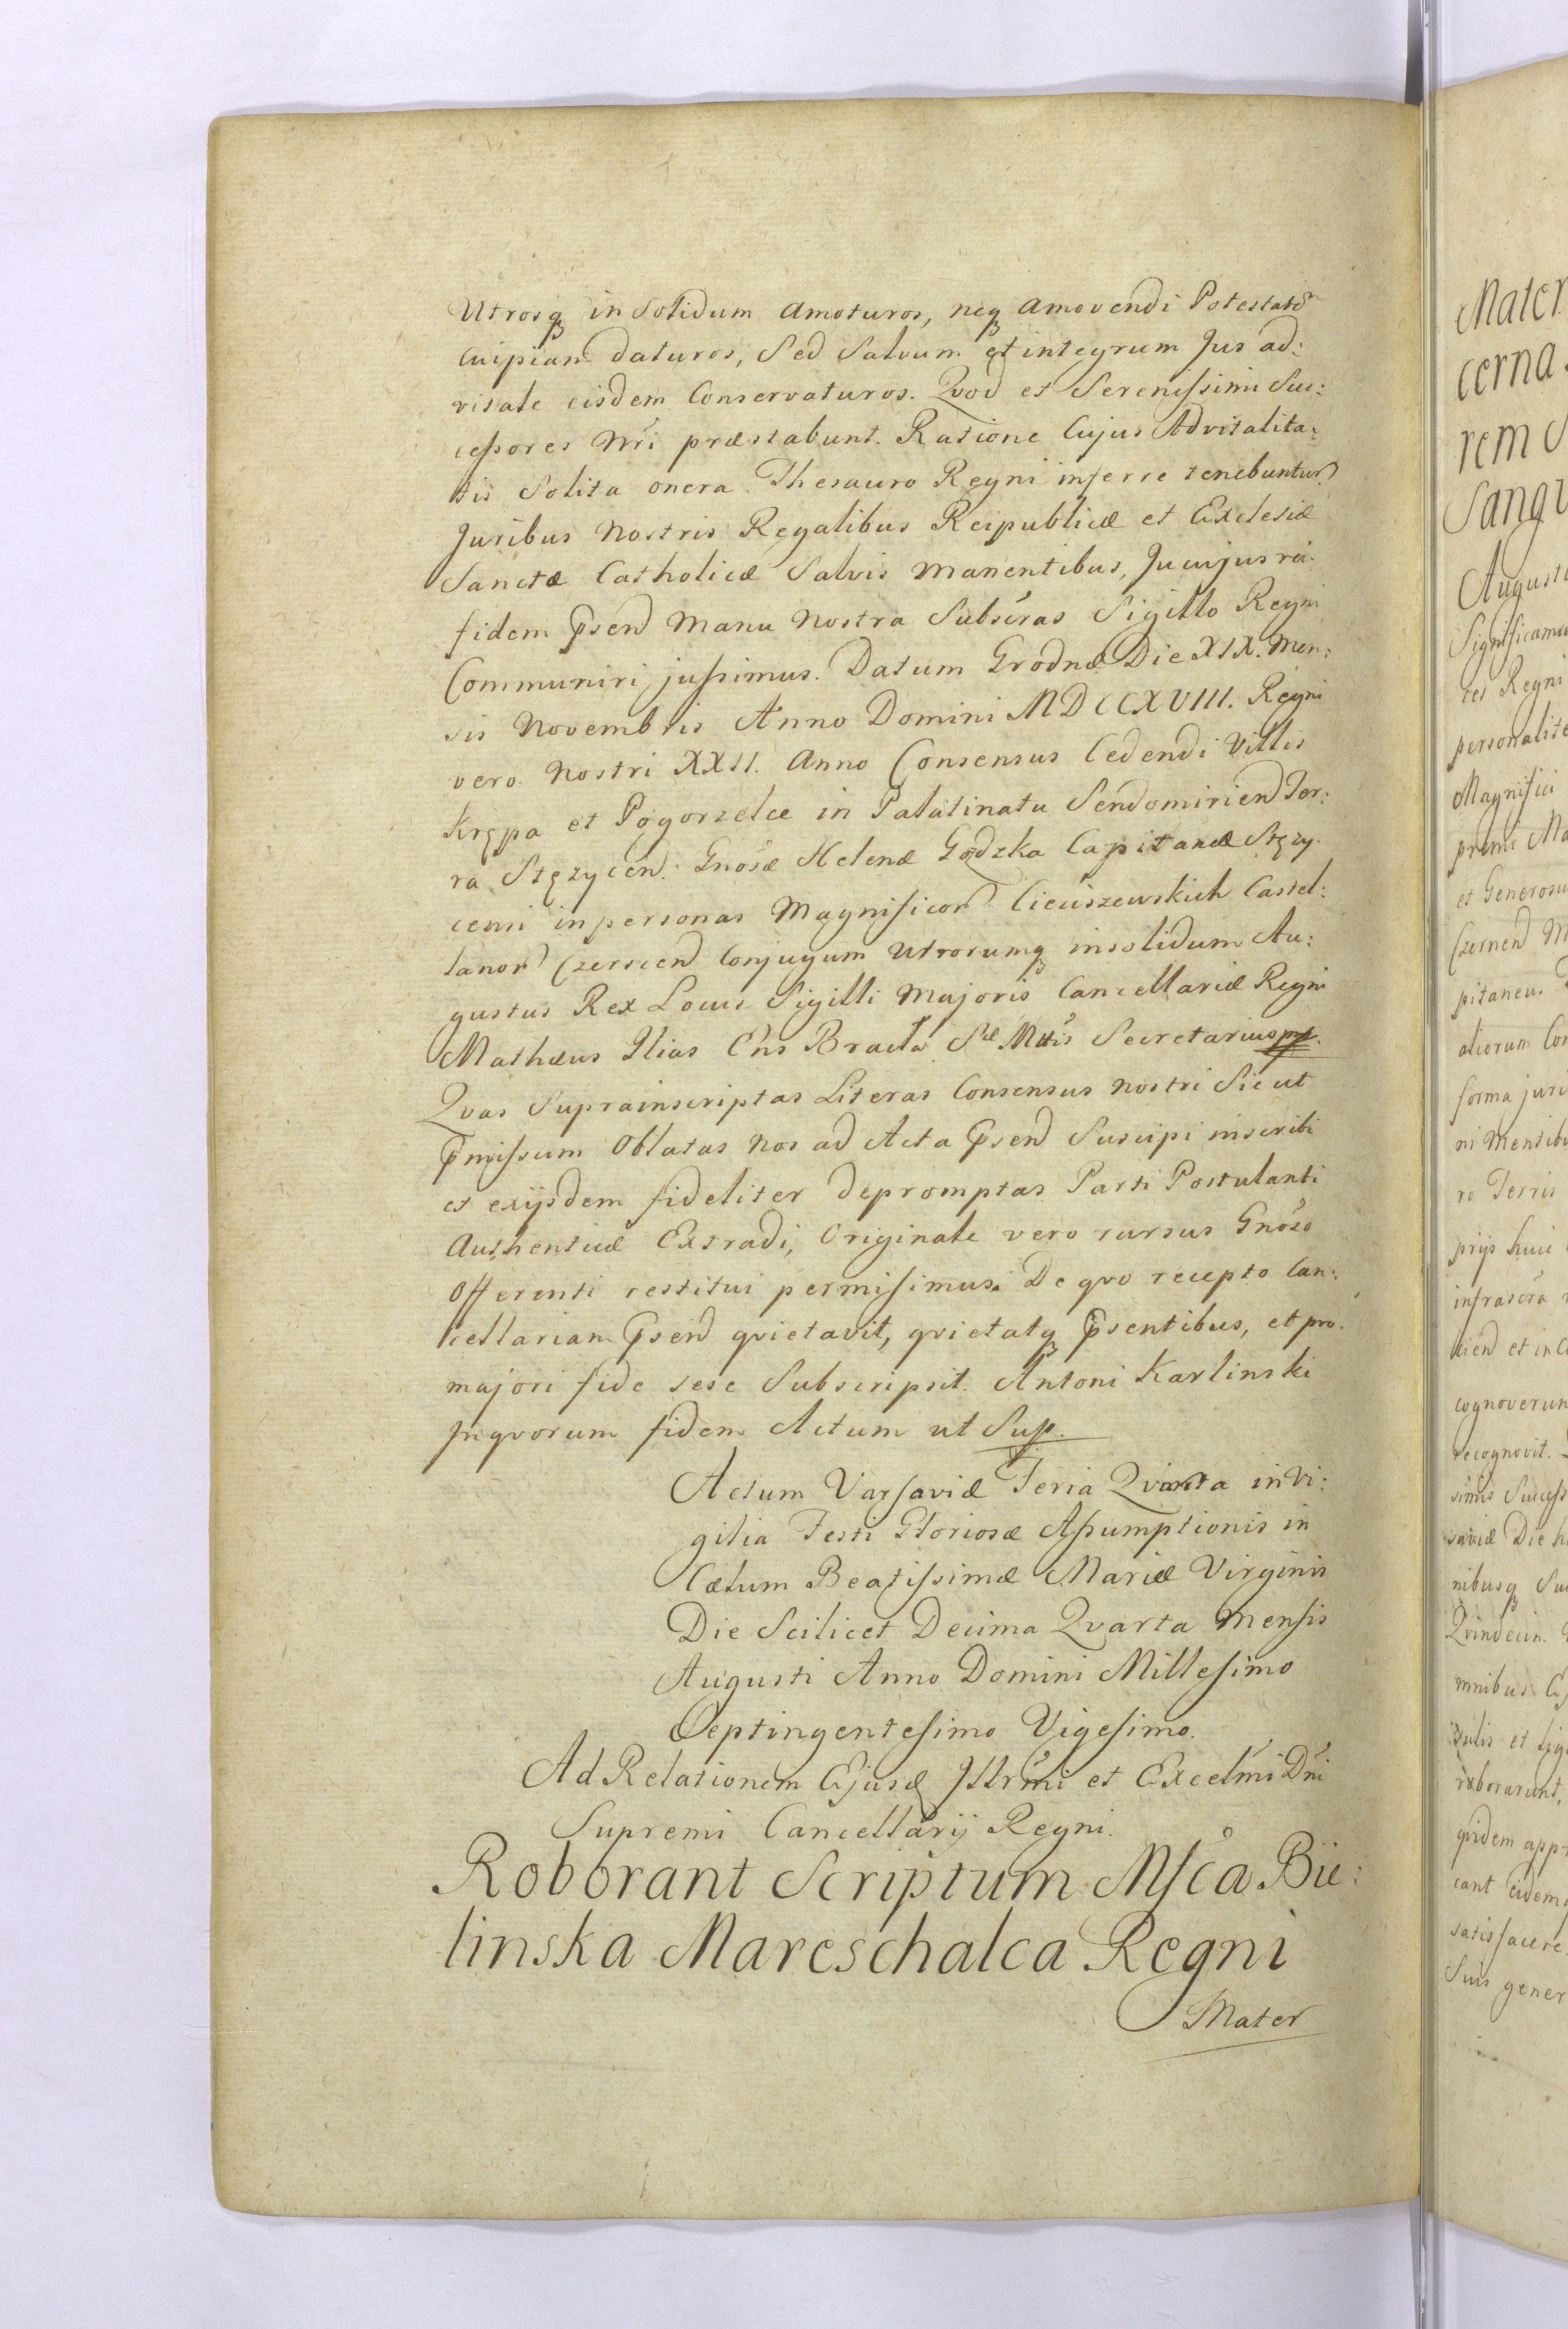 Utrosq in Solidum amoturos, neq amovendi Potestatē
cuipiam daturos, Sed Salvum et integrum Jus ad:
vitale eisdem Conservaturos. Qvod et Serenissimi Suc:
cessores Nr̃i præstabunt. Ratione Cujus Advitalita:
tis Solita onera Thesauro Regni inferre tenebuntur
Juribus Nostris Regalibus Reipublicæ et Ecclesiæ
Sanctæ Catholicæ Salvis Manentibus, Jn cujus rei
fidem Psend Manu Nostra Subscr̃as Sigillo Regni
Communiri jussimus. Datum Grodnæ Die XIX. Men:
sis Novembris Anno Domini MDCCXVIII. Regni
vero Nostri XXII. Anno Consensus Cedendi Villis
Krępa et Pogorzelce in Palatinatu Sendomiriend Ter:
ra Stęzycen. Gnõsæ Helenæ Godzka Capitaneæ Stęzy
censi in personas Magnificor Cieciszewskich Castel:
lanor Czerscen Conjugum Utrorumq insolidum Au:
gustus Rex Locus Sigilli Majoris Cancellariæ Regni
Mathæus Ilias Ens Bracła S Mtis Secretarius mp.
Qvas Suprainscriptas Literas Consensus Nostri Sicut
Pmissum Oblatas Nos ad Acta Psend Suscipi inscribi
et exijsdem fideliter depromptas Parti Postulanti
Authenticæ Extradi, Originale vero rursus Gnõso
Offerenti restitui permisimus. De qvo recepto Can:
cellariam Psend qvietavit, qvietatq Psentibus, et pro
majori fide sese Subscripsit. Antoni Karlinski
Jnqvorum fidem Actum ut Sup.
Actum Varsaviæ Feria Qvarta in Vi:
gilia Festi Gloriosæ Assumptionis in
Cælum Beatissimæ Mariæ Virginis
Die Scilicet Decima Qvarta Mensis
Augusti Anno Domini Millesimo
Septingentesimo Vigesimo.
Ad Relationem Ejusd Jllr̃mi et Excel̃mi Dñi
Supremi Cancellarij Regni.
Roborant Scriptum Msca Bie:
linska Mareschalca Regni
Mater
Mater
cerna
rem S
Sangv
Augustu
Significamus
ces Regni
personalite
Magnifici
primi Ma
et Generosu
Czernend M
pitaneus
aliorum Con
forma juri
ni Mentibu
ro Terris
prijs huic
infrascr̃a
ciend et in
cognoverun
recognovit.
simis Success
saviæ Die h
nibusq Su
Qvindecim
mnibus
et Sig
roborarunt,
qvidem app
cant eidem
satisfacere
Suis gener